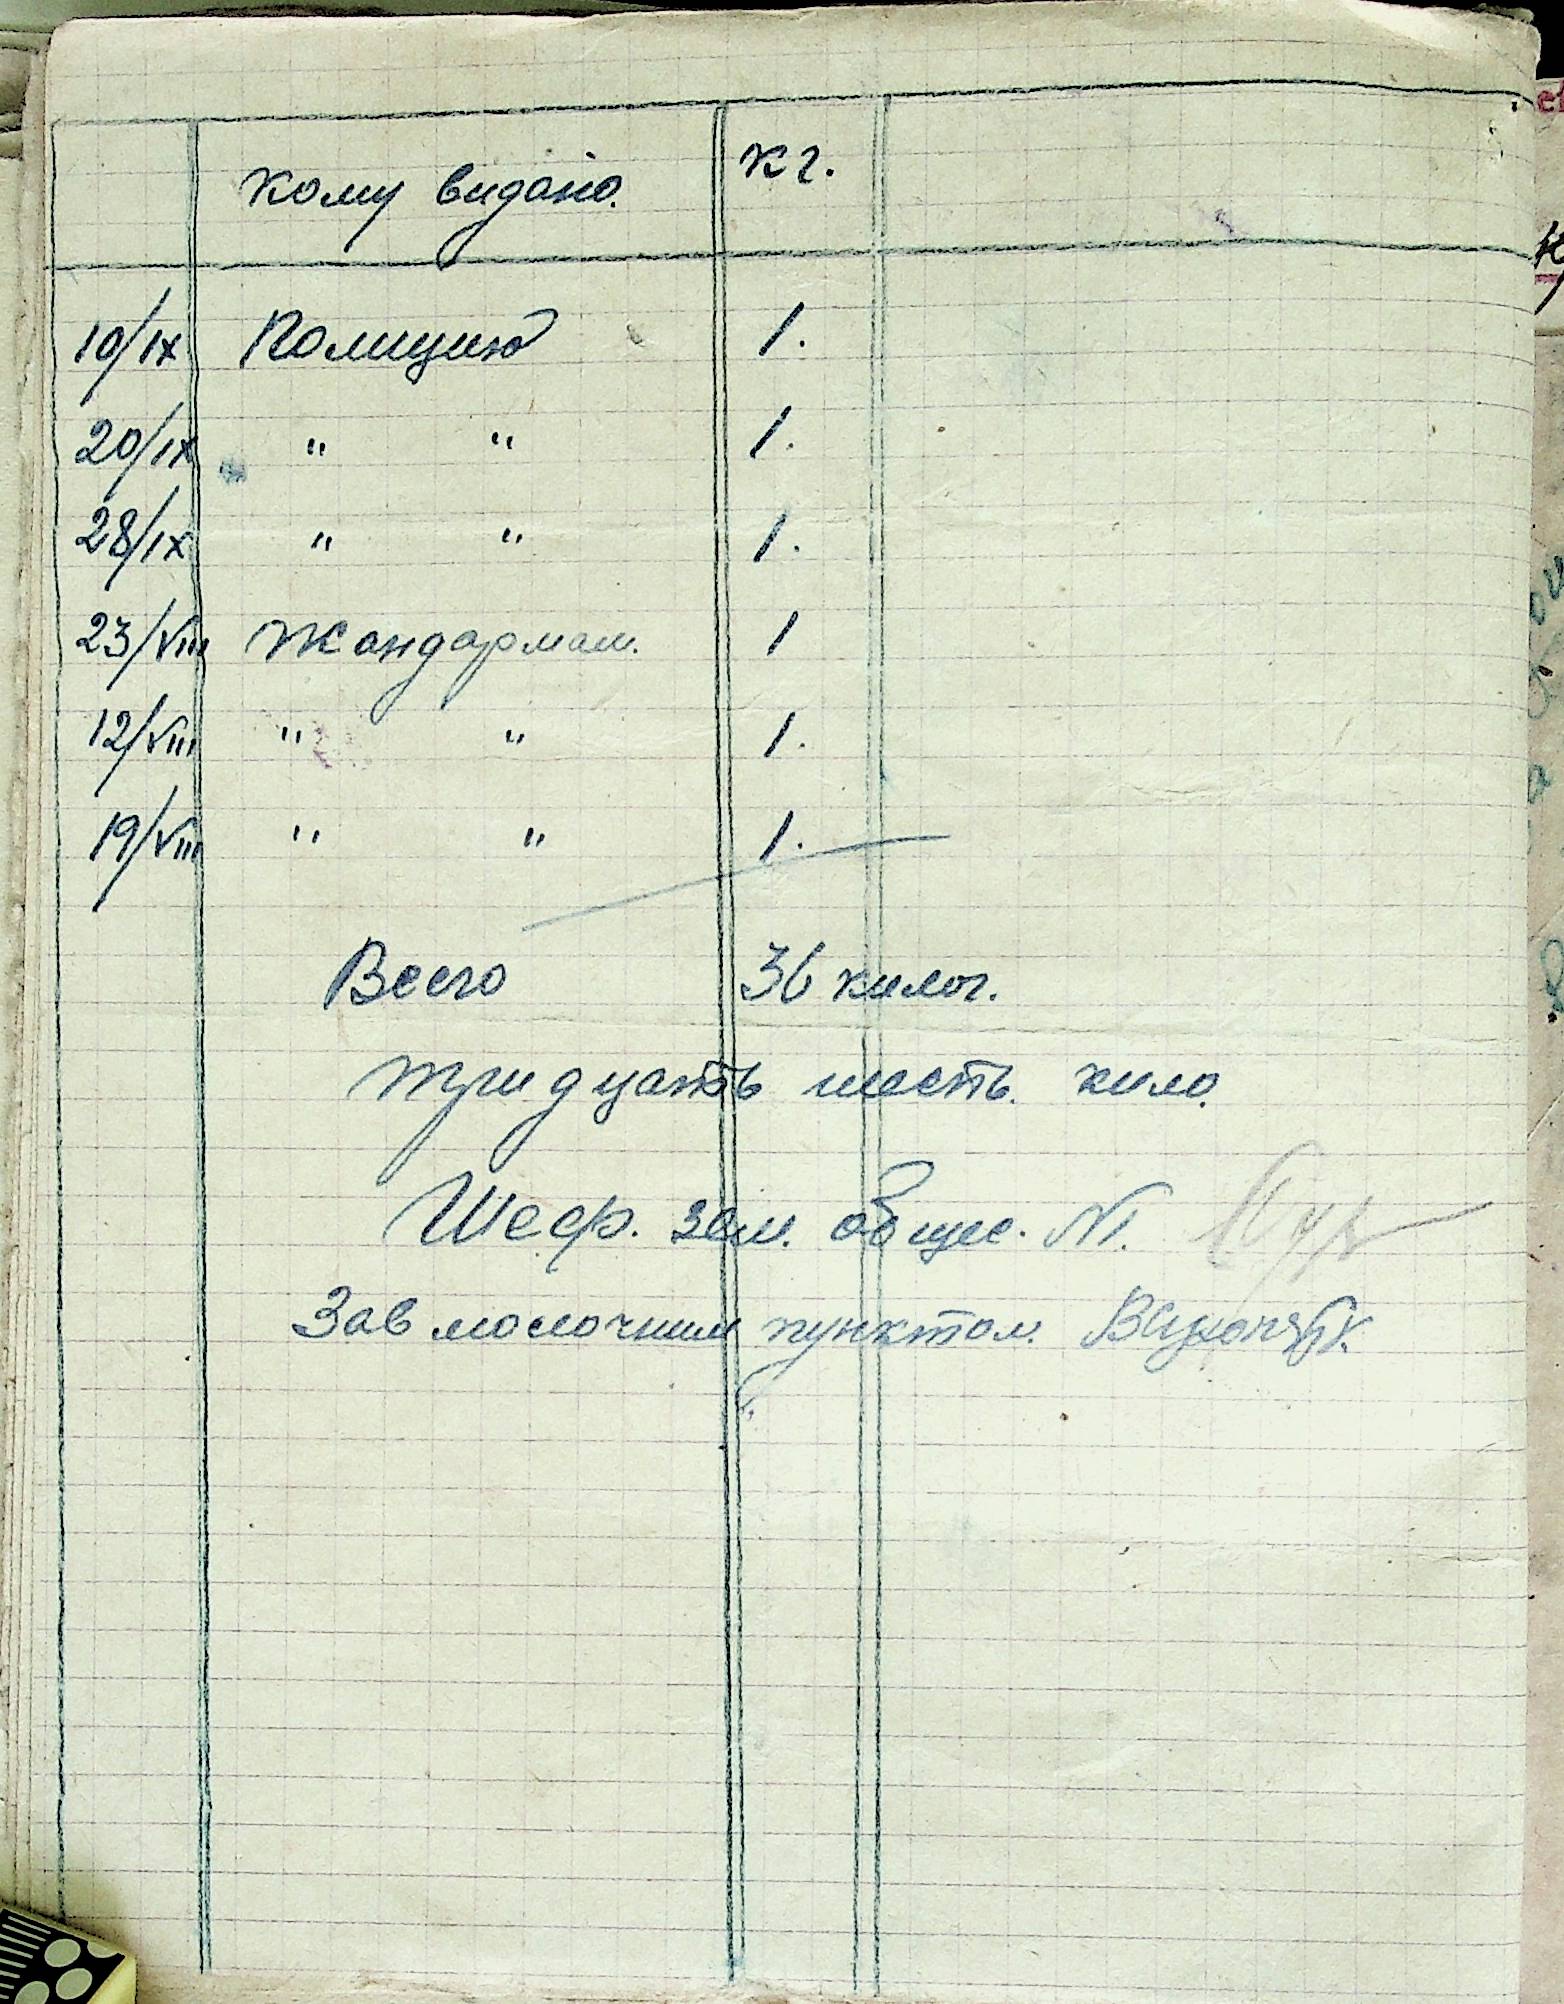 кому видано. кг.
10/IX Полицию 1.
20/IX " " 1.
28/IX " " 1.
23/VIII Жандармам. 1
12/VIII " " 1.
19/VIII " " 1.
Всего 36 килог.
тридцать шесть. кило.
Шеф. зем. общес. №1.
Зав молочним пунктом.